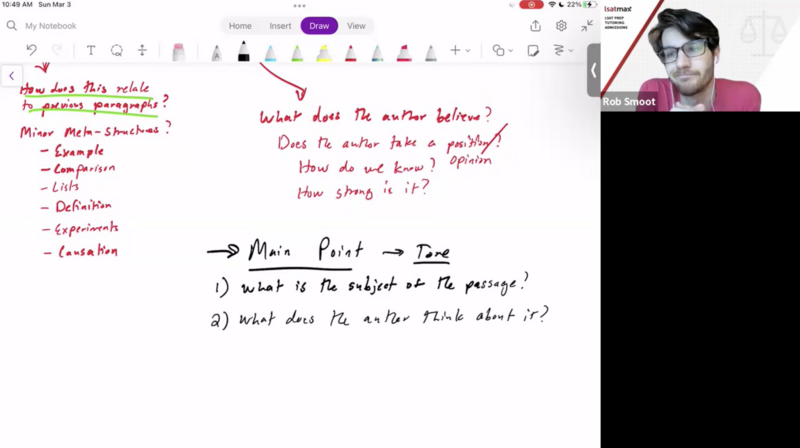 10:49 AM Sun Mar 3
22%
My Notebook
Home Insert Draw View
How does this relate
to previous paragraphs?
Minor Meta-structures?
- Example
- Comparison
- Lists
- Definition
- Experiments
- Causation
What does the author believe?
Does the author take a position?
Opinion
How do we know?
How strong is it?
→ Main Point → Tone
1) What is the subject of the passage?
2) What does the author think about it?
lsatmax
LSAT PREP
TUTORING
ADMISSIONS
Rob Smoot